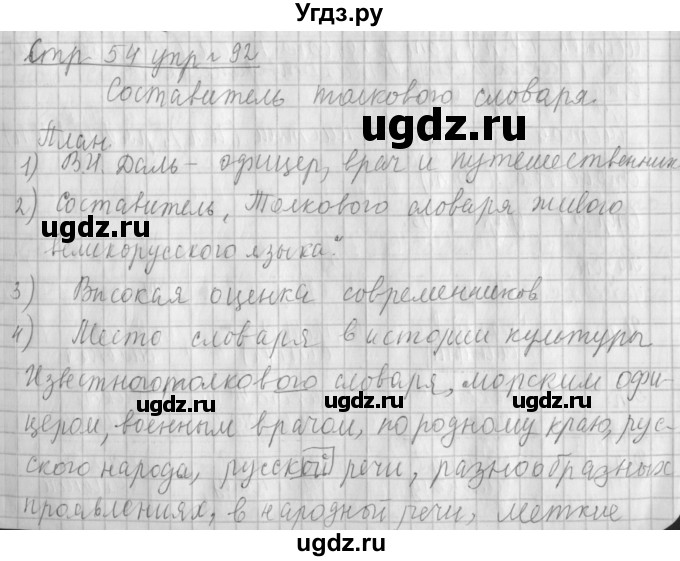 Угдз.ру
Стр 54 упр 92
Составитель толкового словаря.
План.
1) В.И. Даль – офицер, врач и путешественник
2) Составитель „Толкового словаря живого
великорусского языка."
3) Высокая оценка современников
4) Место словаря в истории культуры
Известного толкового словаря, морским офи-
цером, военным врачом, по родному краю, рус-
ского народа, русской речи, разнообразных
проявлениях, в народной речи, меткие
ugdz.ru
ugdz.ru
ugdz.ru
ugdz.ru
ugdz.ru
ugdz.ru
ugdz.ru
ugdz.ru
ugdz.ru